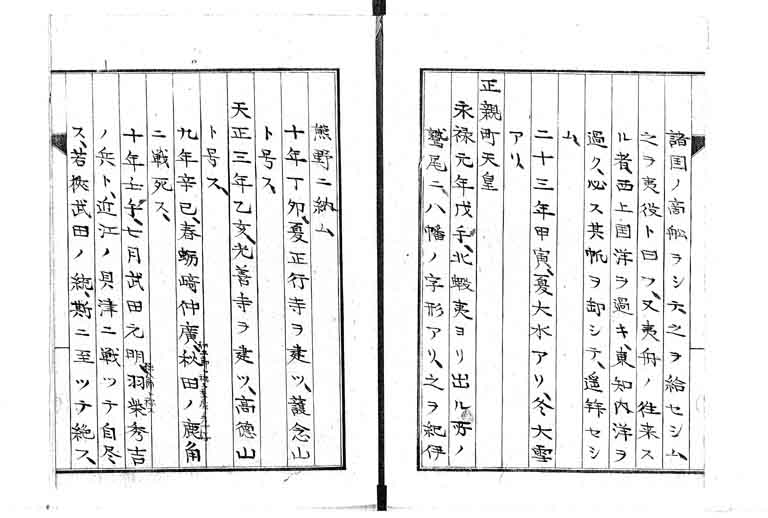 諸国ノ商舩ヲシテ、之ヲ給セシム、
之ヲ夷役ト曰フ、又夷舟ノ往来ス
ル者、西上国洋ヲ過キ、東知内洋ヲ
過ク、必ス其帆ヲ卸シテ、遥拝セシ
ム、
二十三年甲寅、夏大水アリ、冬大雪
アリ、
正親町天皇
永禄元年戊午、北蝦夷ヨリ出ル所ノ
鷲尾ニ八幡ノ字形アリ、之ヲ紀伊
熊野ニ納ム、
十年丁卯、夏正行寺ヲ建ツ、護念山
ト号ス、
天正三年乙亥、光善寺ヲ建ツ、高徳山
ト号ス、
九年辛巳、春蛎崎仲廣、秋田ノ鹿角
ニ戦死ス、
十年壬午、七月武田元明、羽柴秀吉
ノ兵ト、近江ノ貝津ニ戦ツテ自尽
ス、若狭武田ノ統、斯ニ至ツテ絶ス、